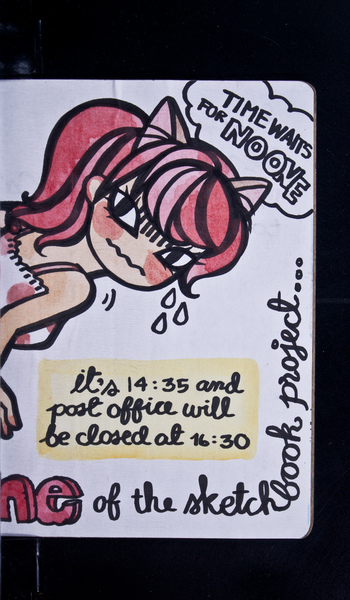 TIME WAITS
FOR NOONE
it's 14:35 and
post office will
be closed at 16:30
ne of the sketchbook project...